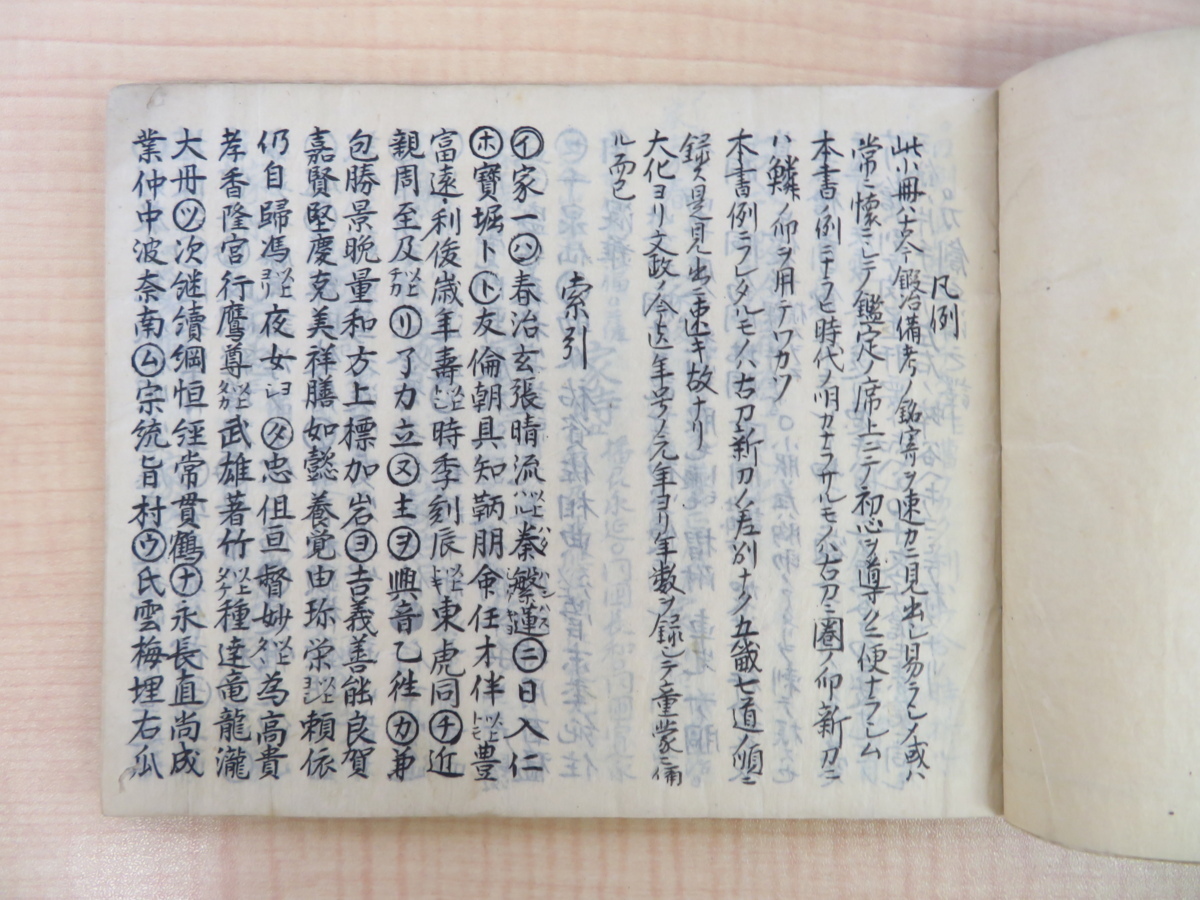 凡例
此小冊ハ古今鍛冶備考ノ銘寄ヲ速カニ見出シ易ラシノ或ハ
常ニ懐ニシテ鑑定ノ席上ニテ初心ヲ導クノ便ナラシム
本書ノ例ニナラヒ時代ノ明カナラサルモノハ古刀ニ圏ノ印新刀ニ
ハ鱗ノ印ヲ用テワカツ
本書例ニクレタルモノハ古刀新刀ノ差別ナク五畿七道ノ順ニ
録ス是見出ニ速キ故ナリ
大化ヨリ文政ノ今迄年号ノ元年ヨリ年数ヲ録シテ童蒙ニ備
ル而已
索引
㋑家一㋩春治玄張晴流以上ハル心秦繁蓮㋥日入仁
㋭寶堀卜㋣友倫朝具知鞆朋命任才伴以上トモ豊
富遠利俊歳年壽以上トシ時季刻辰以上トキ東虎同㋠近
親周至及以上チカ㋷了力立㋦主㋾興音乙徃㋕兼
包勝景晩量和方上標加岩㋵吉義善能良賀
嘉賢堅慶克美祥膳如懿養覚由珎栄以上ヨシ頼依
仍自歸馮以上ヨリ夜女ヨ㋟忠但亘督妙以上為高貴
孝香隆宮行鷹尊以上タカ武雄著竹以上タケ種達竜龍瀧
大丹㋡次継續綱恒經常貫鶴㋤永長直尚成
業仲中波奈南㋰宗統旨村㋒氏雲梅埋右瓜